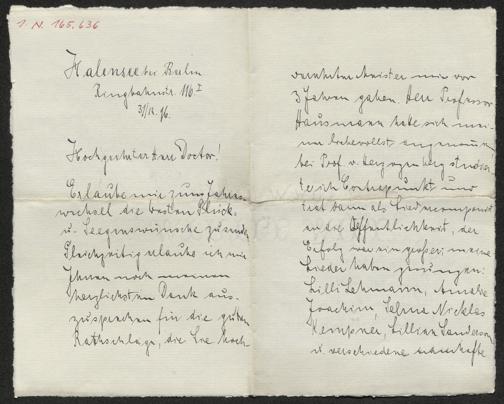 I. N. 165.636
Halensee bei Berlin
Ringbahnstr. 116 I
31/12. 96.
Hochgeehrter Herr Doctor!
Erlaube mir zum Jahres-
wechsel die besten Glück-
u. Seegenswünsche zu senden
Gleichzeitig erlaube ich mir
Ihnen noch meinen
herzlichsten Dank aus-
zusprechen für die guten
Rathschläge, die Sie hoch
verehrter Meister mir vor
3 Jahren gaben. Herr Professor
Hausmann hatte sich mei-
ner liebevollst angenommen
bei Prof. v. Herzogenberg
te ich Contrapunkt und
trat dann als Liedercomponist
an die Öffentlichkeit, der
Erfolg war ein großer, meine
Lieder haben gesungen:
Lilli Lehmann, Amalie
Joachim, Selma Nicklas
Kempner, Lillian Sanderson
u. verschiedene namhafte